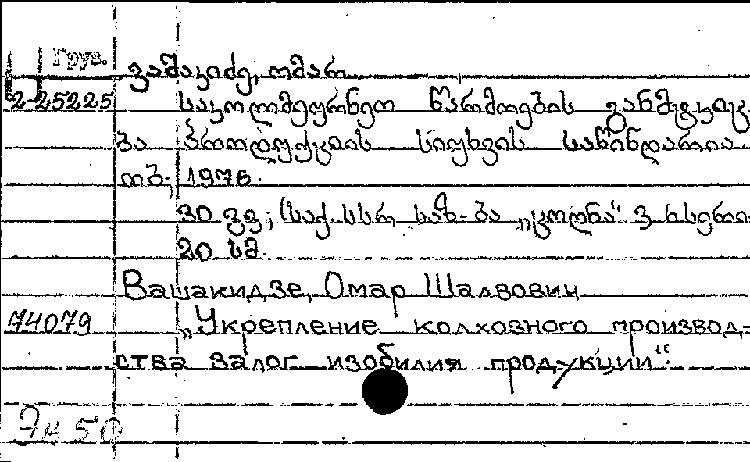 Груз.
ვაშაკიძე, ომარ
2-25225 საკოლმეურნეო წარმოების განმტკიცე
ბა პროდუქციის სიუხვის საწინდარია
თბ., 1976.
30 გვ; (საქ. სსრ საზ-ბა „ცოდნა“
20 სმ.
Вашакидзе, Омар Шалвович
74079 „Укрепление колхозного производ-
ства залог изобилия продукции“.
Эк 50